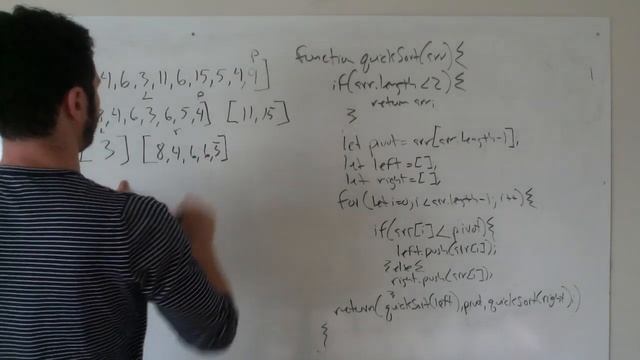 p
4, 6, 3, 11, 6, 15, 5, 4, 9]
8, 4, 6, 3, 6, 5, 4] [11, 15]
[3] [8, 4, 6, 6, 5]
function quickSort(arr){
if(arr.length<2){
return arr;
}
let pivot=arr[arr.length-1];
let left=[];
let right=[];
for(let i=0;i<arr.length-1;i++){
if(arr[i]<pivot){
left.push(arr[i]);
}else{
right.push(arr[i]);
}
return(quickSort(left),pivot,quickSort(right);)
{